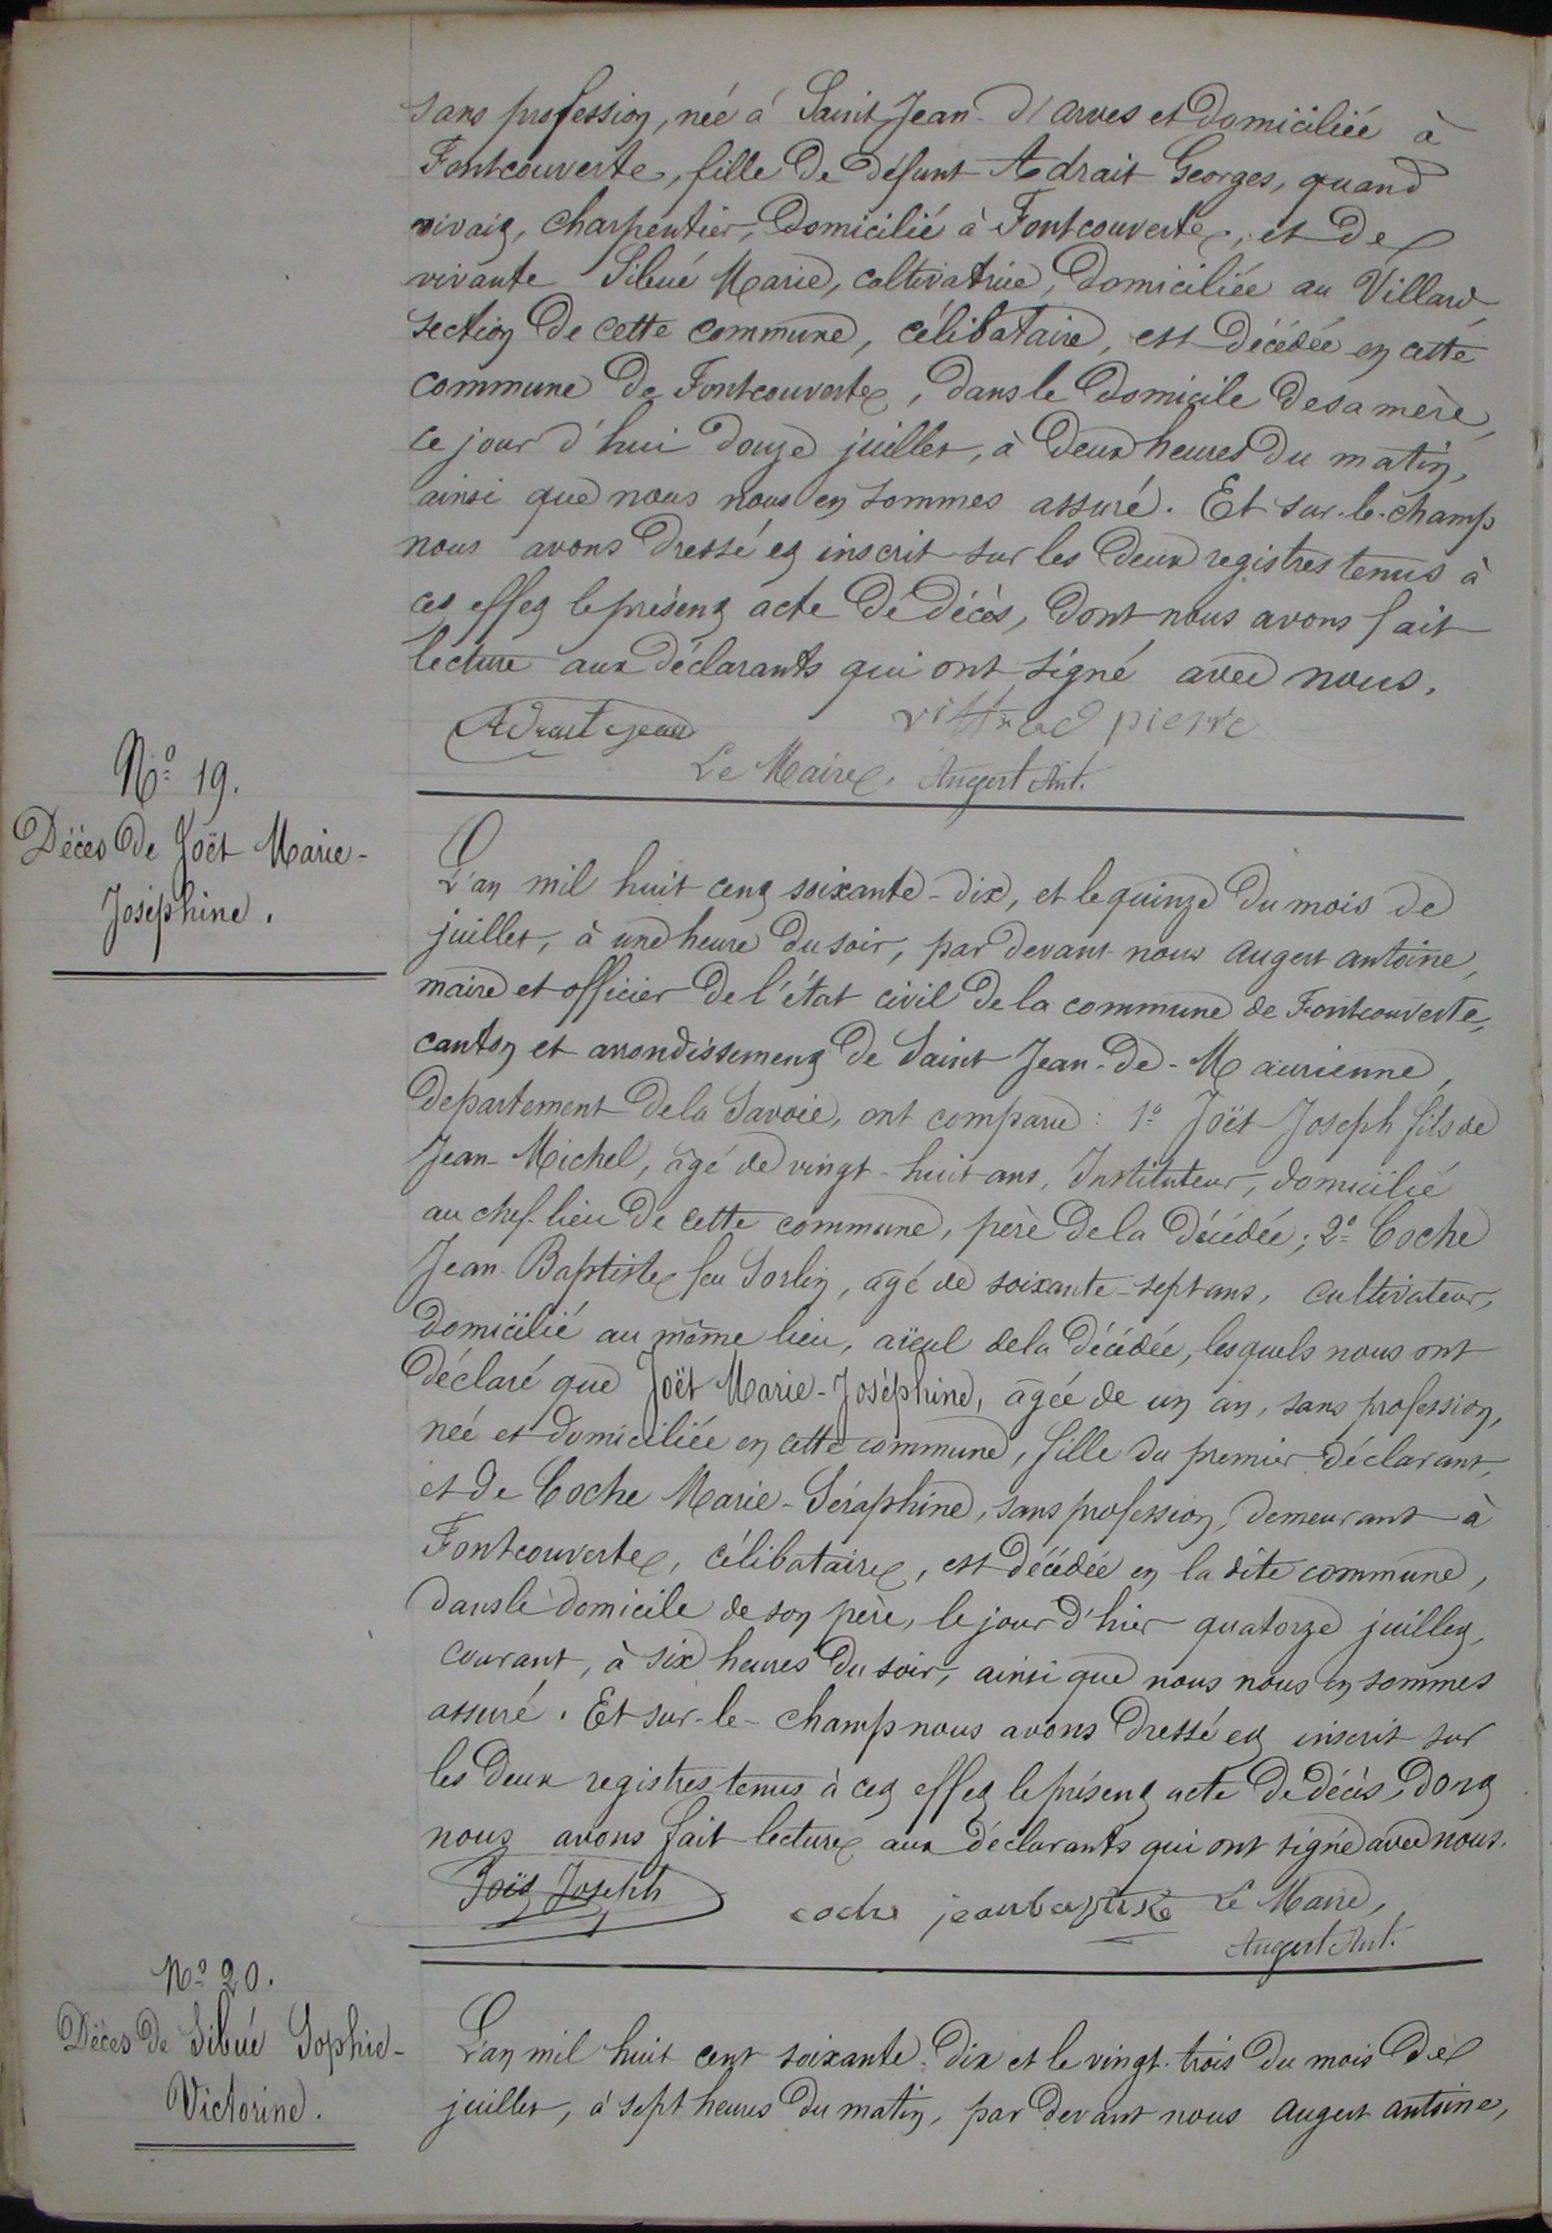 sans profession, née à Saint Jean-d'arves et domiciliée à
Fontcouverte, fille de défunt Adrait Georges, quand
vivait, charpentier, domicilié à Fontcouverte, et de
vivante Sibué Marie, cultivatrice, domiciliée au Villard
section de cette commune, célibataire, est décédée en cette
commune de Fontcouverte, dans le domicile de sa mère,
ce jour d'hui douze juillet, à deux heures du matin,
ainsi que nous nous en sommes assuré. Et sur-le-champ
nous avons dressé et inscrit sur les deux registres tenus à
cet effet le présent acte de décès, dont nous avons fait
lecture aux déclarants qui ont signé avec nous.
Adrait jean pierre
Le Maire, Augert Ant.
No 19.
Décès de Joët Marie-
Joséphine.
L'an mil huit cent soixante-dix, et le quinze du mois de
juillet, à une heure du soir, par devant nous augert antoine,
maire et officier de l'état civil de la commune de Fontcouverte,
canton et arrondissement de Saint Jean-de-Maurienne,
departement de la Savoie, ont comparu : 1o Joët Joseph fils de
Jean-Michel, âgé de vingt-huit ans, Instituteur, domicilié
au chef-lieu de cette commune, père de la décédée; 2o Coche
Jean-Baptiste feu Sorlin, âgé de soixante-sept ans, cultivateur,
domicilié au même lieu, aïeul de la décédée, lesquels nous ont
déclaré que Joët Marie-Joséphine, âgée de un an, sans profession,
née et domiciliée en cette commune, fille du premier déclarant,
et de Coche Marie-Séraphine, sans profession, demeurant à
Fontcouverte, célibataire, est décédée en la dite commune,
dans le domicile de son père, le jour d'hier quatorze juillet,
courant, à six heures du soir, ainsi que nous nous en sommes
assuré. Et sur-le-champ nous avons dressé et inscrit sur
les deux registres tenus à cet effet le présent acte de décès, dont
nous avons fait lecture aux déclarants qui ont signé avec nous.
Joët Joseph coche jean baptiste Le Maire,
Augert Ant.
No 20.
Décès de Sibué Sophie-
Victorine.
L'an mil huit cent soixante-dix et le vingt-trois du mois de
juillet, à sept heures du matin, par devant nous augert antoine,